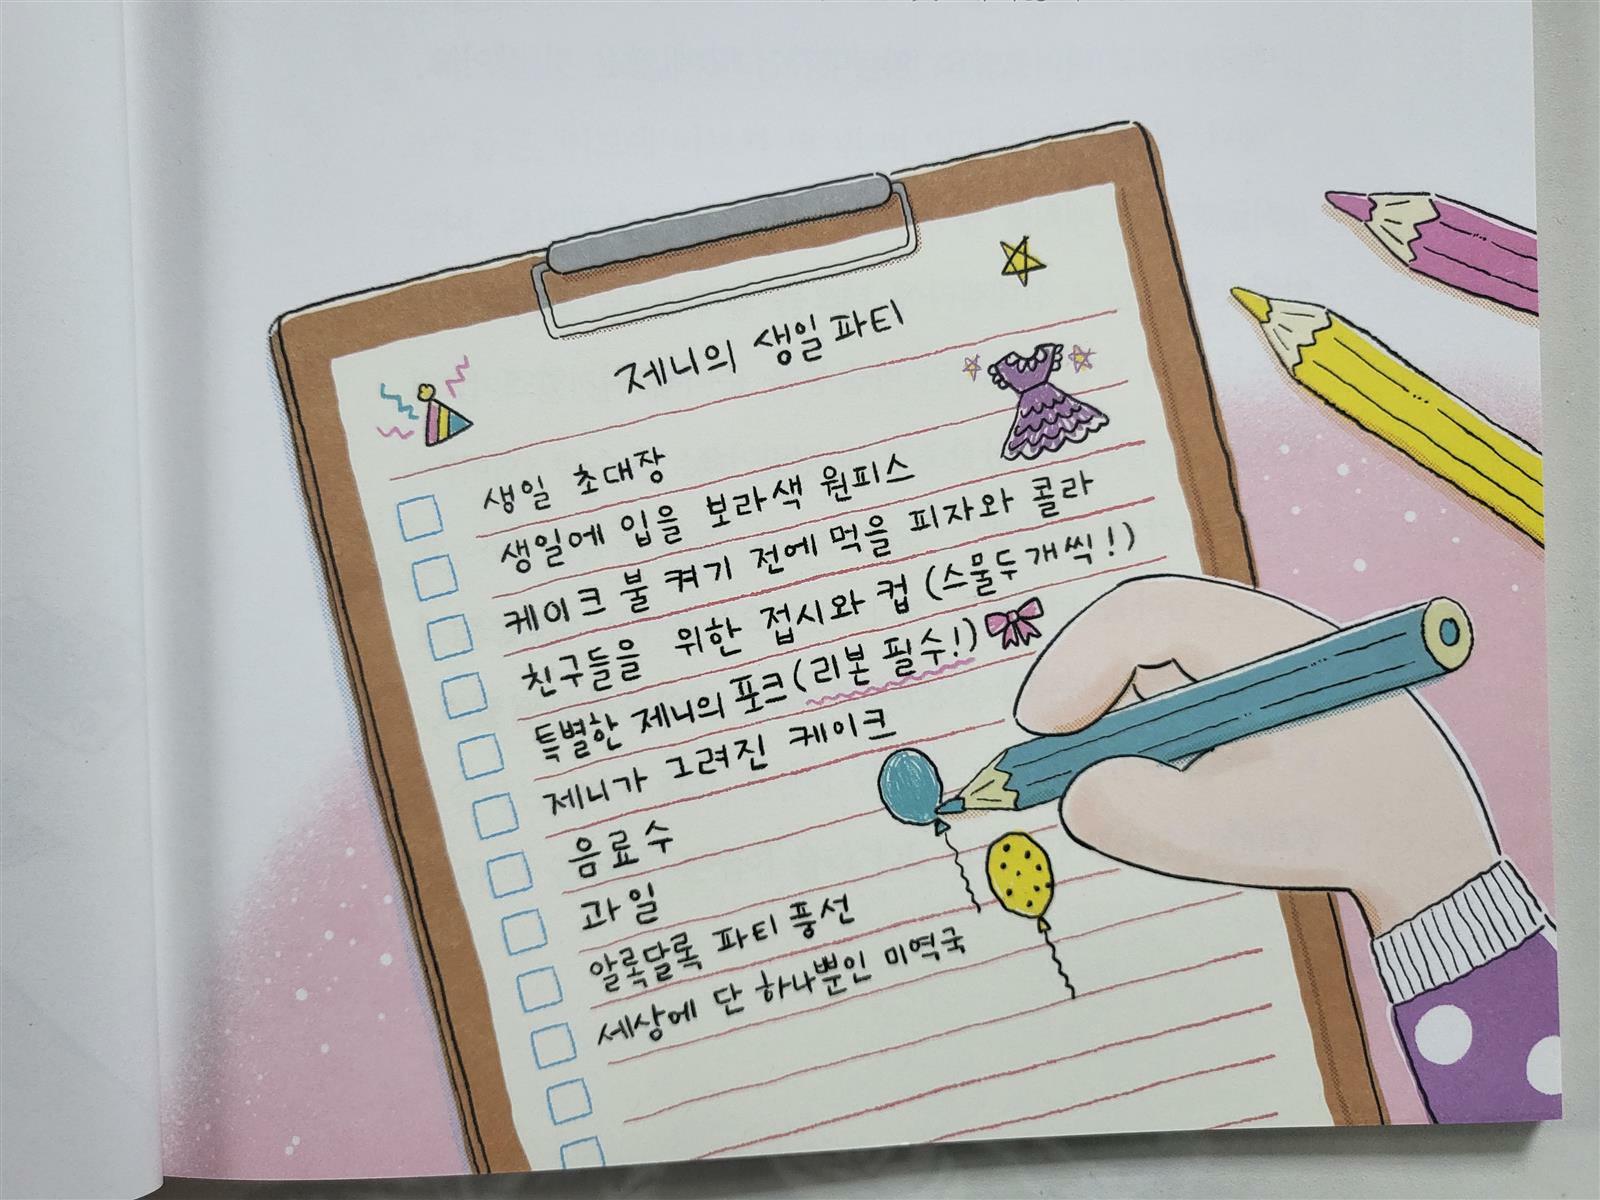 제니의 생일파티
생일 초대장
생일에 입을 보라색 원피스
케이크 불 켜기 전에 먹을 피자와 콜라
친구들을 위한 접시와 컵 (스물두개씩!)
특별한 제니의 포크(리본 필수!)
제니가 그려진 케이크
음료수
과일
알록달록 파티 풍선
세상에 단 하나뿐인 미역국